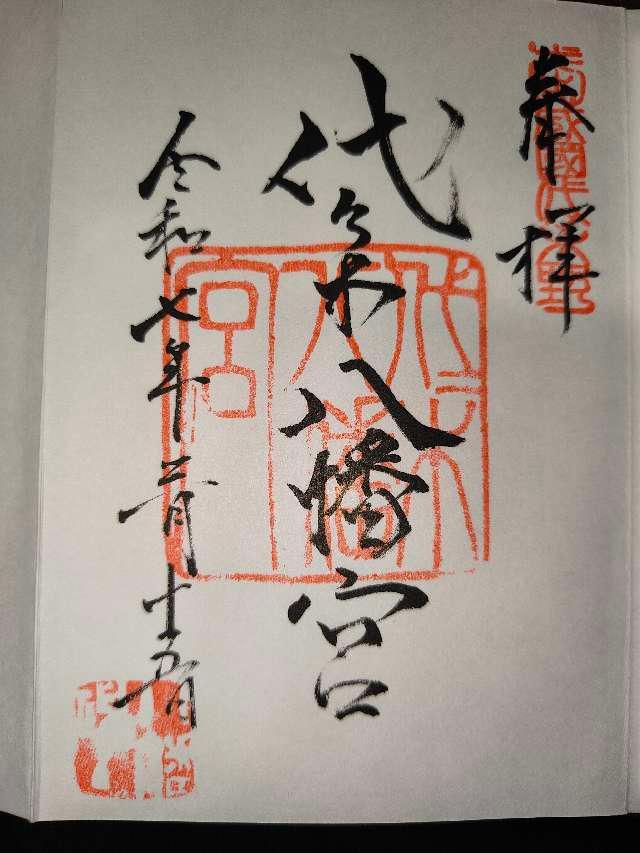 奉拝
代々木八幡宮
代々木
八幡
宮
令和七年二月十五日